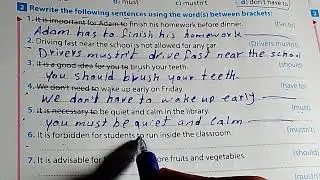 b) must
c) mustn't
d) don't have to
2 Rewrite the following sentences using the word(s) between brackets:
1. It is important for Adam to finish his homework before dinner.
Adam has to finish his homework
2. Driving fast near the school is not allowed for any car. (Drivers mustn't)
Drivers mustn't drive fast near the school
3. It is a good idea for you to brush your teeth.
you should brush your teeth.
4. We don't need to wake up early on Friday.
We don't have to wake up early
5. It is necessary to be quiet and calm in the library. (must)
you must be quiet and calm
6. It is forbidden for students to run inside the classroom. (mustn't)
7. It is advisable for ore fruits and vegetables.